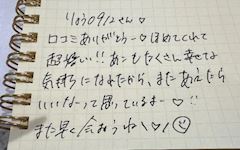 りょう0912さん♡
口コミありがとうー♡ほめてくれて
超嬉しい!!あこもたくさん幸せな
気持ちになれたから、またあえたら
いいなーって思っているよー♡!!
また早く会おうね♡